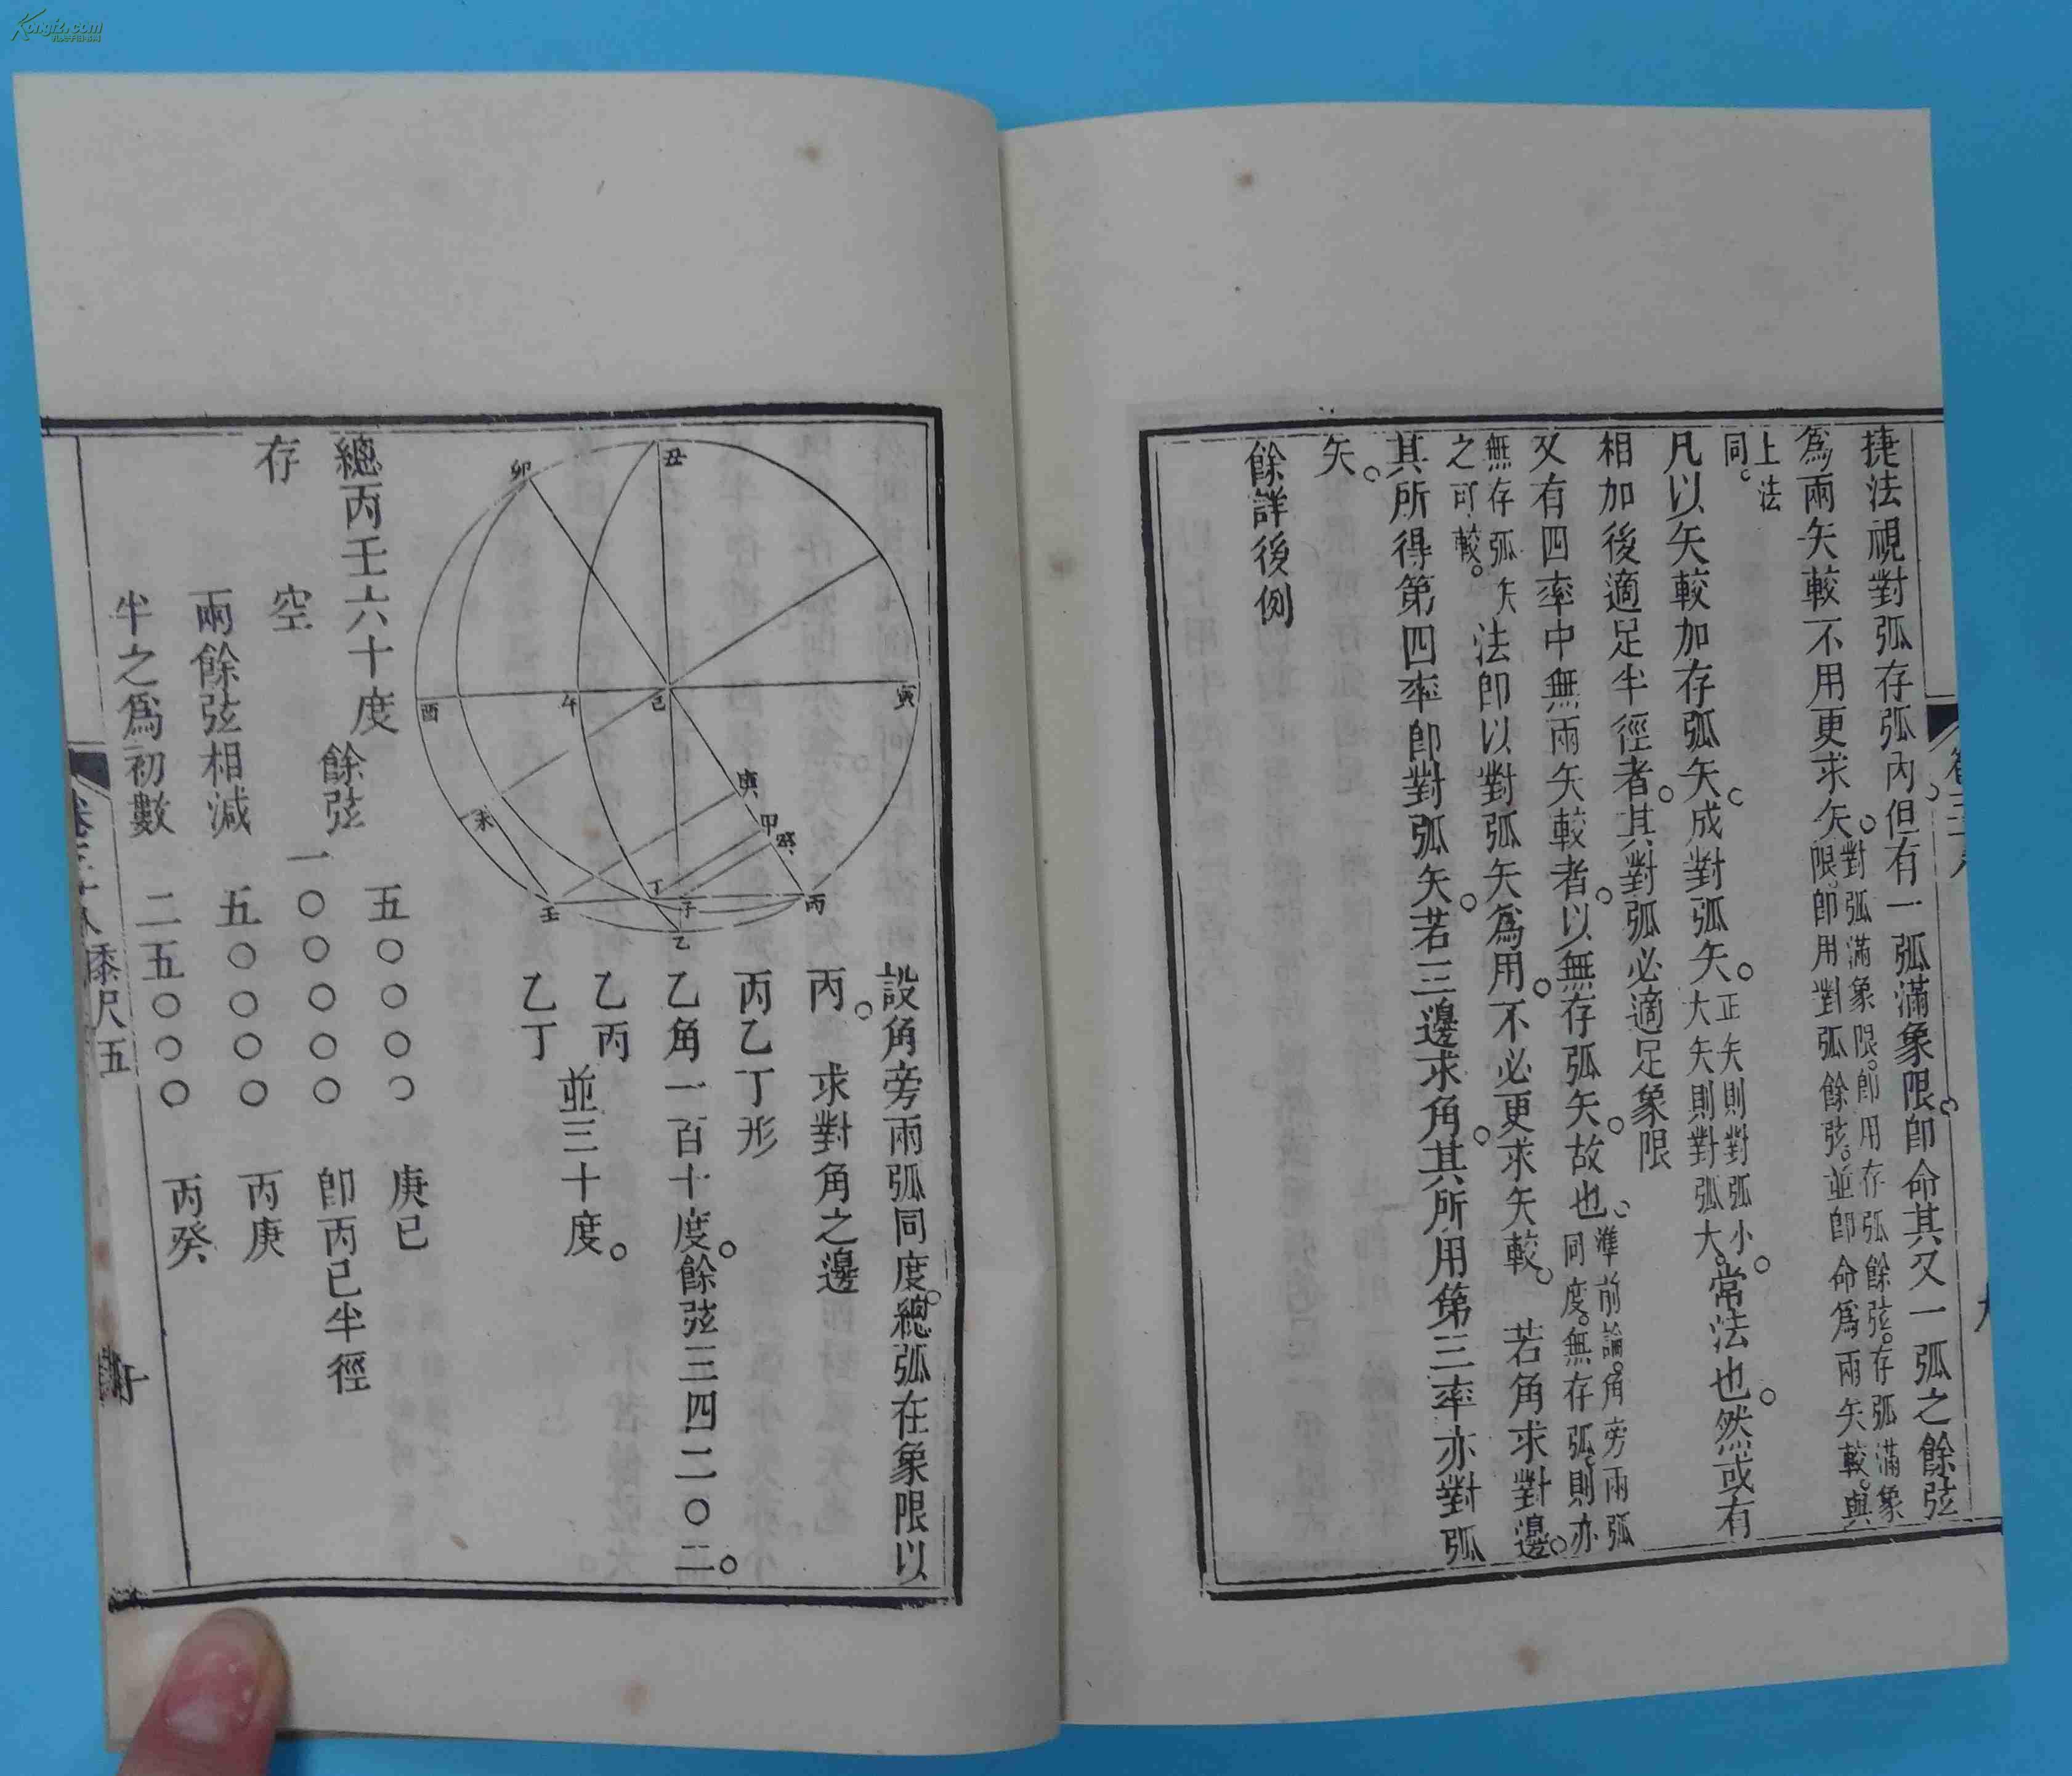 Kongfz.com
捷法視對弧存弧內但有一弧滿象限。卽命其又一弧之餘弦
爲兩矢較不用更求矢。對弧滿象限。卽用存弧餘弦。存弧滿象
限。卽用對弧餘弦。並卽命爲兩矢較。與
上法
同。
凡以矢較加存弧矢。成對弧矢。正矢則對弧小。
大矢則對弧大。常法也。然或有
相加後適足半徑者。其對弧必適足象限
又有四率中無兩矢較者。以無存弧矢。故也。準前論。角旁兩弧
同度。無存弧。則亦
無存弧矢
之可較。法卽以對弧矢爲用。不必更求矢較。若角求對邊。
其所得第四率卽對弧矢。若三邊求角。其所用第三率亦對弧
矢。
餘詳後例
設角旁兩弧同度。總弧在象限以
丙。求對角之邊
丙乙丁形
乙角一百十度。餘弦三四二〇二。
乙丙
乙丁
並三十度。
丑
卯
寅
酉
午
己
庚
甲
癸
未
丁
子
丙
壬
乙
總丙壬六十度 餘弦 五〇〇〇〇 庚已
存 空 一〇〇〇〇〇 卽丙已半徑
兩餘弦相減 五〇〇〇〇 丙庚
半之爲初數 二五〇〇〇 丙癸
黍尺五